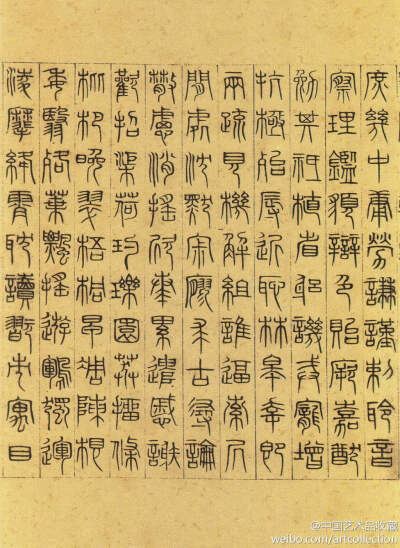 庶幾中庸勞謙謹敕聆音
察理鑑貌辯色貽厥嘉猷
勉其祗植省躬譏誡寵增
抗極殆辱近恥林皋幸即
兩疏見機解組誰逼索居
閒處沈默寂寥求古尋論
散慮消搖欣奏累遣慼謝
歡招渠荷玓瓅園莽抽條
枇杷晚翠梧桐早凋陳根
委翳落葉飄搖遊鵾獨運
凌摩絳霄耽讀翫市寓目
@中国艺术品收藏
weibo.com/artcollection